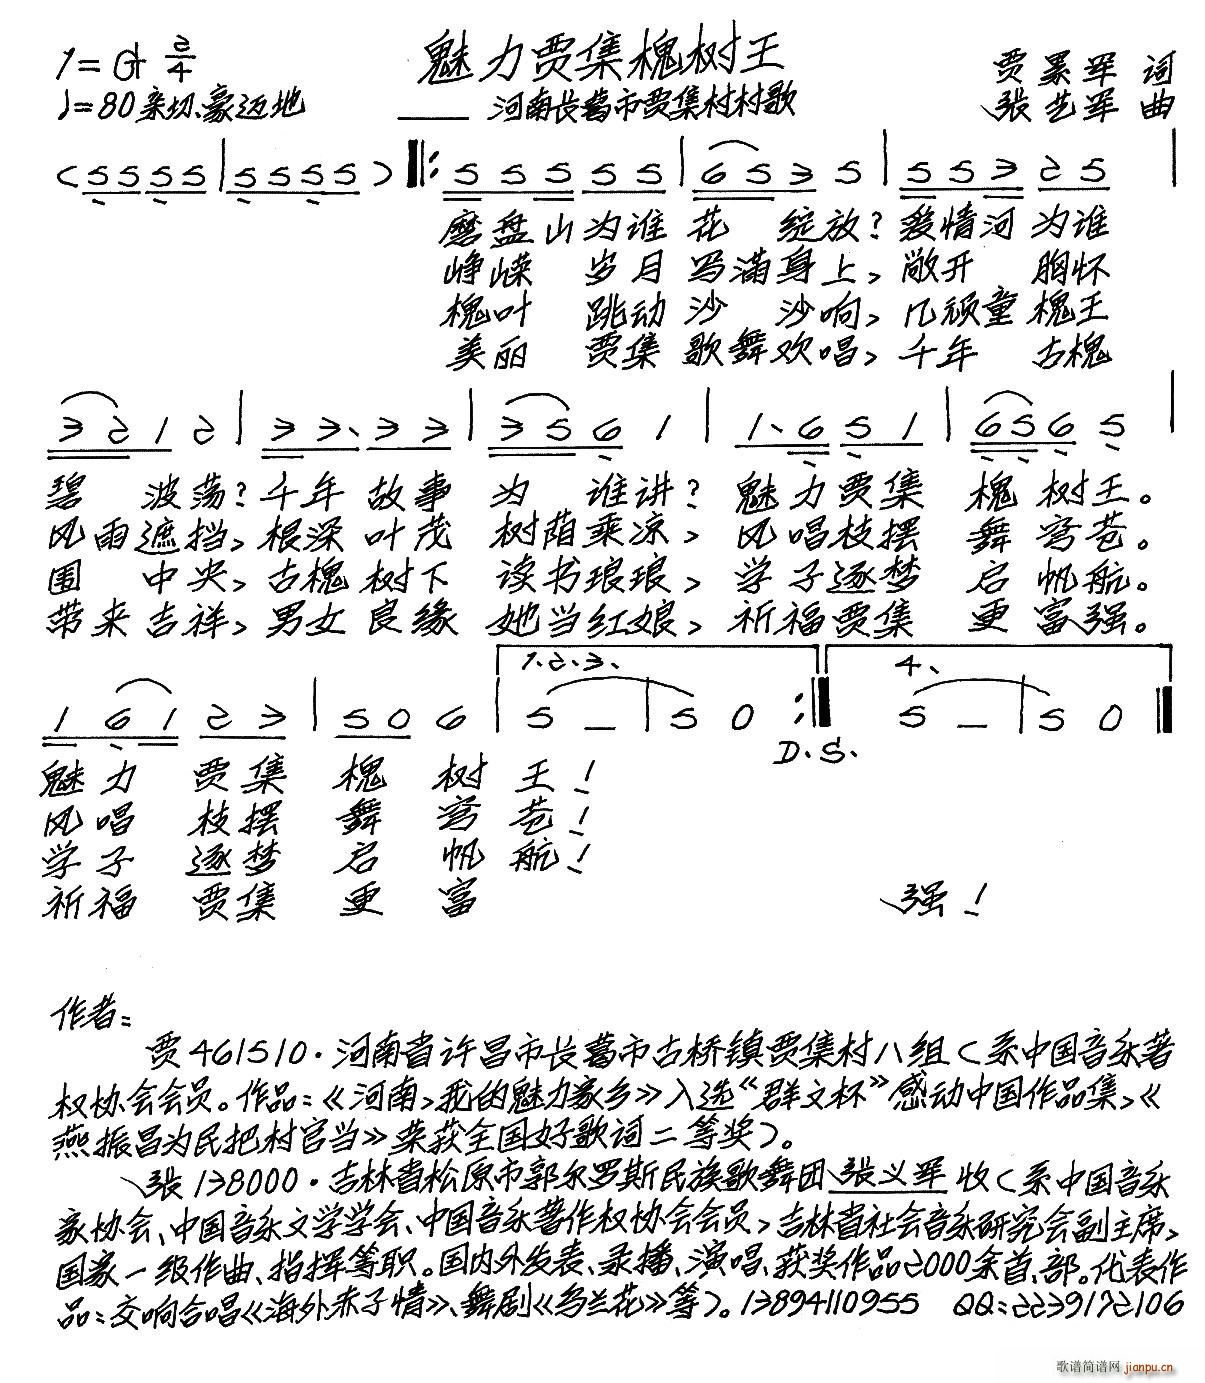 1=G 2/4 魅力贾集槐树王 贾累军 词
♩=80 亲切、豪迈地 ——河南长葛市贾集村村歌 张艺军 曲
(5555|5555)‖: 555 55|6535|553 25|
磨盘山为谁花 绽放?爱情河为谁
峥嵘 岁月写满身上,敞开 胸怀
槐叶 跳动沙 沙响,几顽童槐王
美丽 贾集歌舞欢唱,千年 古槐
3212|33.33|3561|1.651|6565|
碧 波荡?千年故事 为 谁讲?魅力贾集 槐树王。
风雨遮挡,根深叶茂 树荫乘凉,风唱枝摆 舞穹苍。
围 中央,古槐树下 读书琅琅,学子逐梦 启帆航。
带来吉祥,男女良缘 她当红娘,祈福贾集 更富强。
1.2.3. 4.
161 23|506|5 –|50:‖5 –|50‖
D.S.
魅力 贾集 槐 树 王!
风唱 枝摆 舞 穹 苍!
学子 逐梦 启 帆 航!
祈福 贾集 更 富 强!
作者:
贾461510·河南省许昌市长葛市古桥镇贾集村八组(系中国音乐著
权协会会员。作品:《河南,我的魅力家乡》入选“群文杯”感动中国作品集,《
燕振昌为民把村官当》荣获全国好歌词二等奖)。
张138000·吉林省松原市郭尔罗斯民族歌舞团张义军收(系中国音乐
家协会、中国音乐文学学会、中国音乐著作权协会会员,吉林省社会音乐研究会副主席,
国家一级作曲、指挥等职。国内外发表、录播、演唱、获奖作品2000余首、部。代表作
品:交响合唱《海外赤子情》、舞剧《乌兰花》等)。13894110955 QQ:2239172106
歌谱简谱网 jianpu.cn